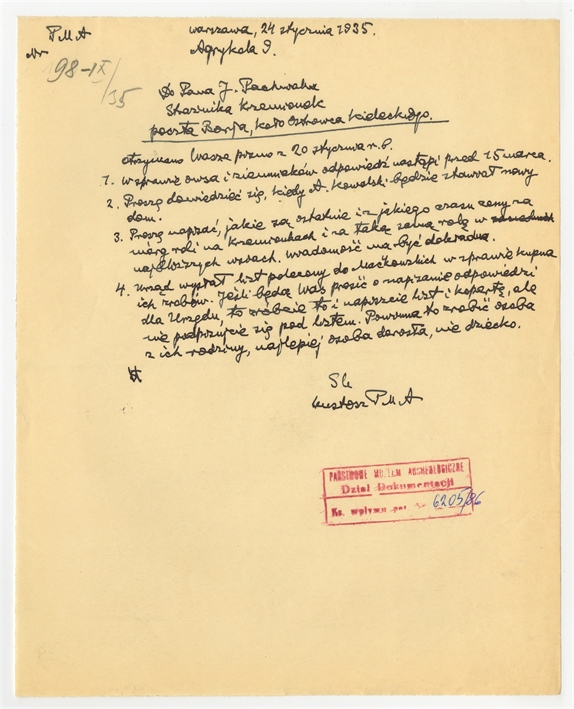 PMA
Nr
198-IX/35
Warszawa, 24 stycznia 1935.
Agrykola 9.
Do Pana J. Pachwalx
Strażnika Krzemionek
poczta Borja, koło Ostrowca Kieleckiego.
Otrzymano Wasze pismo z 20 stycznia r.b.
1. W sprawie owsa i ziemniaków odpowiedź nastąpi przed 15 marca.
2. Proszę dowiedzieć się, kiedy A. Kowalski będzie stawiał nowy
dom.
3. Proszę napisać, jakie są ostatnie i z jakiego czasu ceny za
mórg roli na Krzemionkach i za taką samą rolę w
najbliższych wsiach. Wiadomość ma być dokładna.
4. Urząd wysłał list polecony do Maćkowskich w sprawie kupna
ich zrębów. Jeśli będą Was prosić o napisanie odpowiedzi
dla Urzędu, to zróbcie to i napiszcie list i kopertę, ale
nie podpisujcie się pod listem. Powinna to zrobić osoba
z ich rodziny, najlepiej osoba dorosła, nie dziecko.
Kustosz PMA
PAŃSTWOWE MUZEUM ARCHEOLOGICZNE
Dział Dokumentacji
Ks. wpływu poz. 6205/86